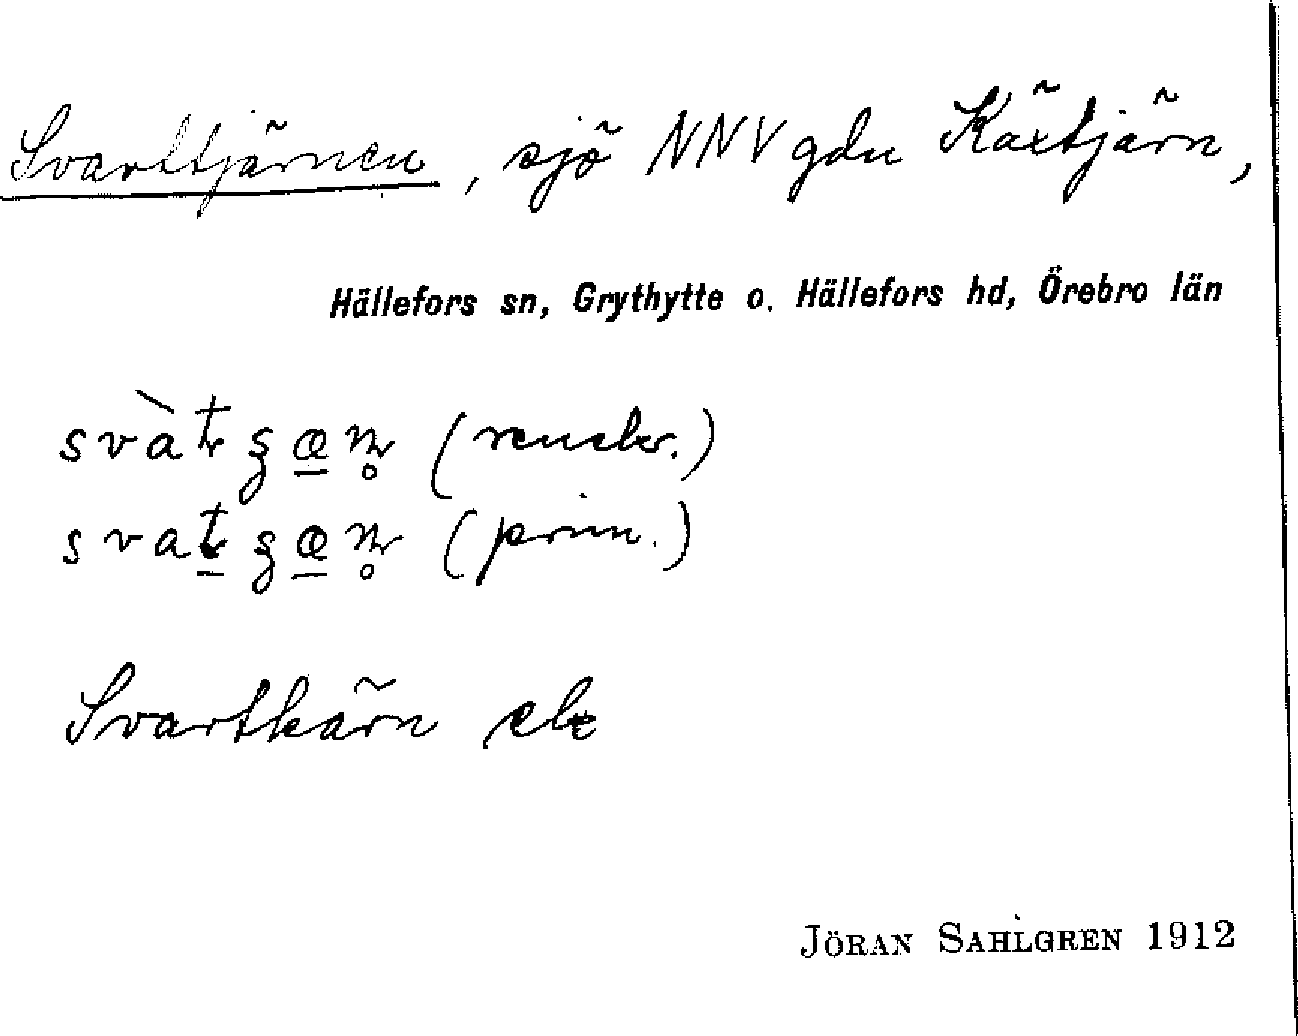 Svarttjärnen, sjö NNV gdn Käxtjärn,
Hällefors sn, Grythytte o. Hällefors hd, Örebro län
svàtʂæn̥ (renskr.)
svatʂæn̥ (prim.)
Svartkärn ek
JÖRAN SAHLGREN 1912